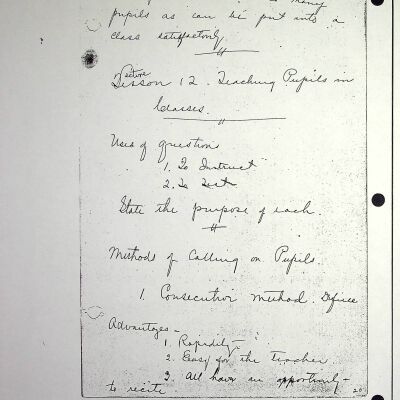 many
pupils as can be put into a
class satisfactorily.
Lecture
Lesson 12. Teaching Pupils in
Classes.
Uses of question
1. To Instruct
2. To Test
State the purpose of each.
Methods of Calling on Pupils.
1. Consecutive method. Define
Advantages -
1. Rapidity -
2. Easy for the teacher
3. All have an opportunity -
to recite
20